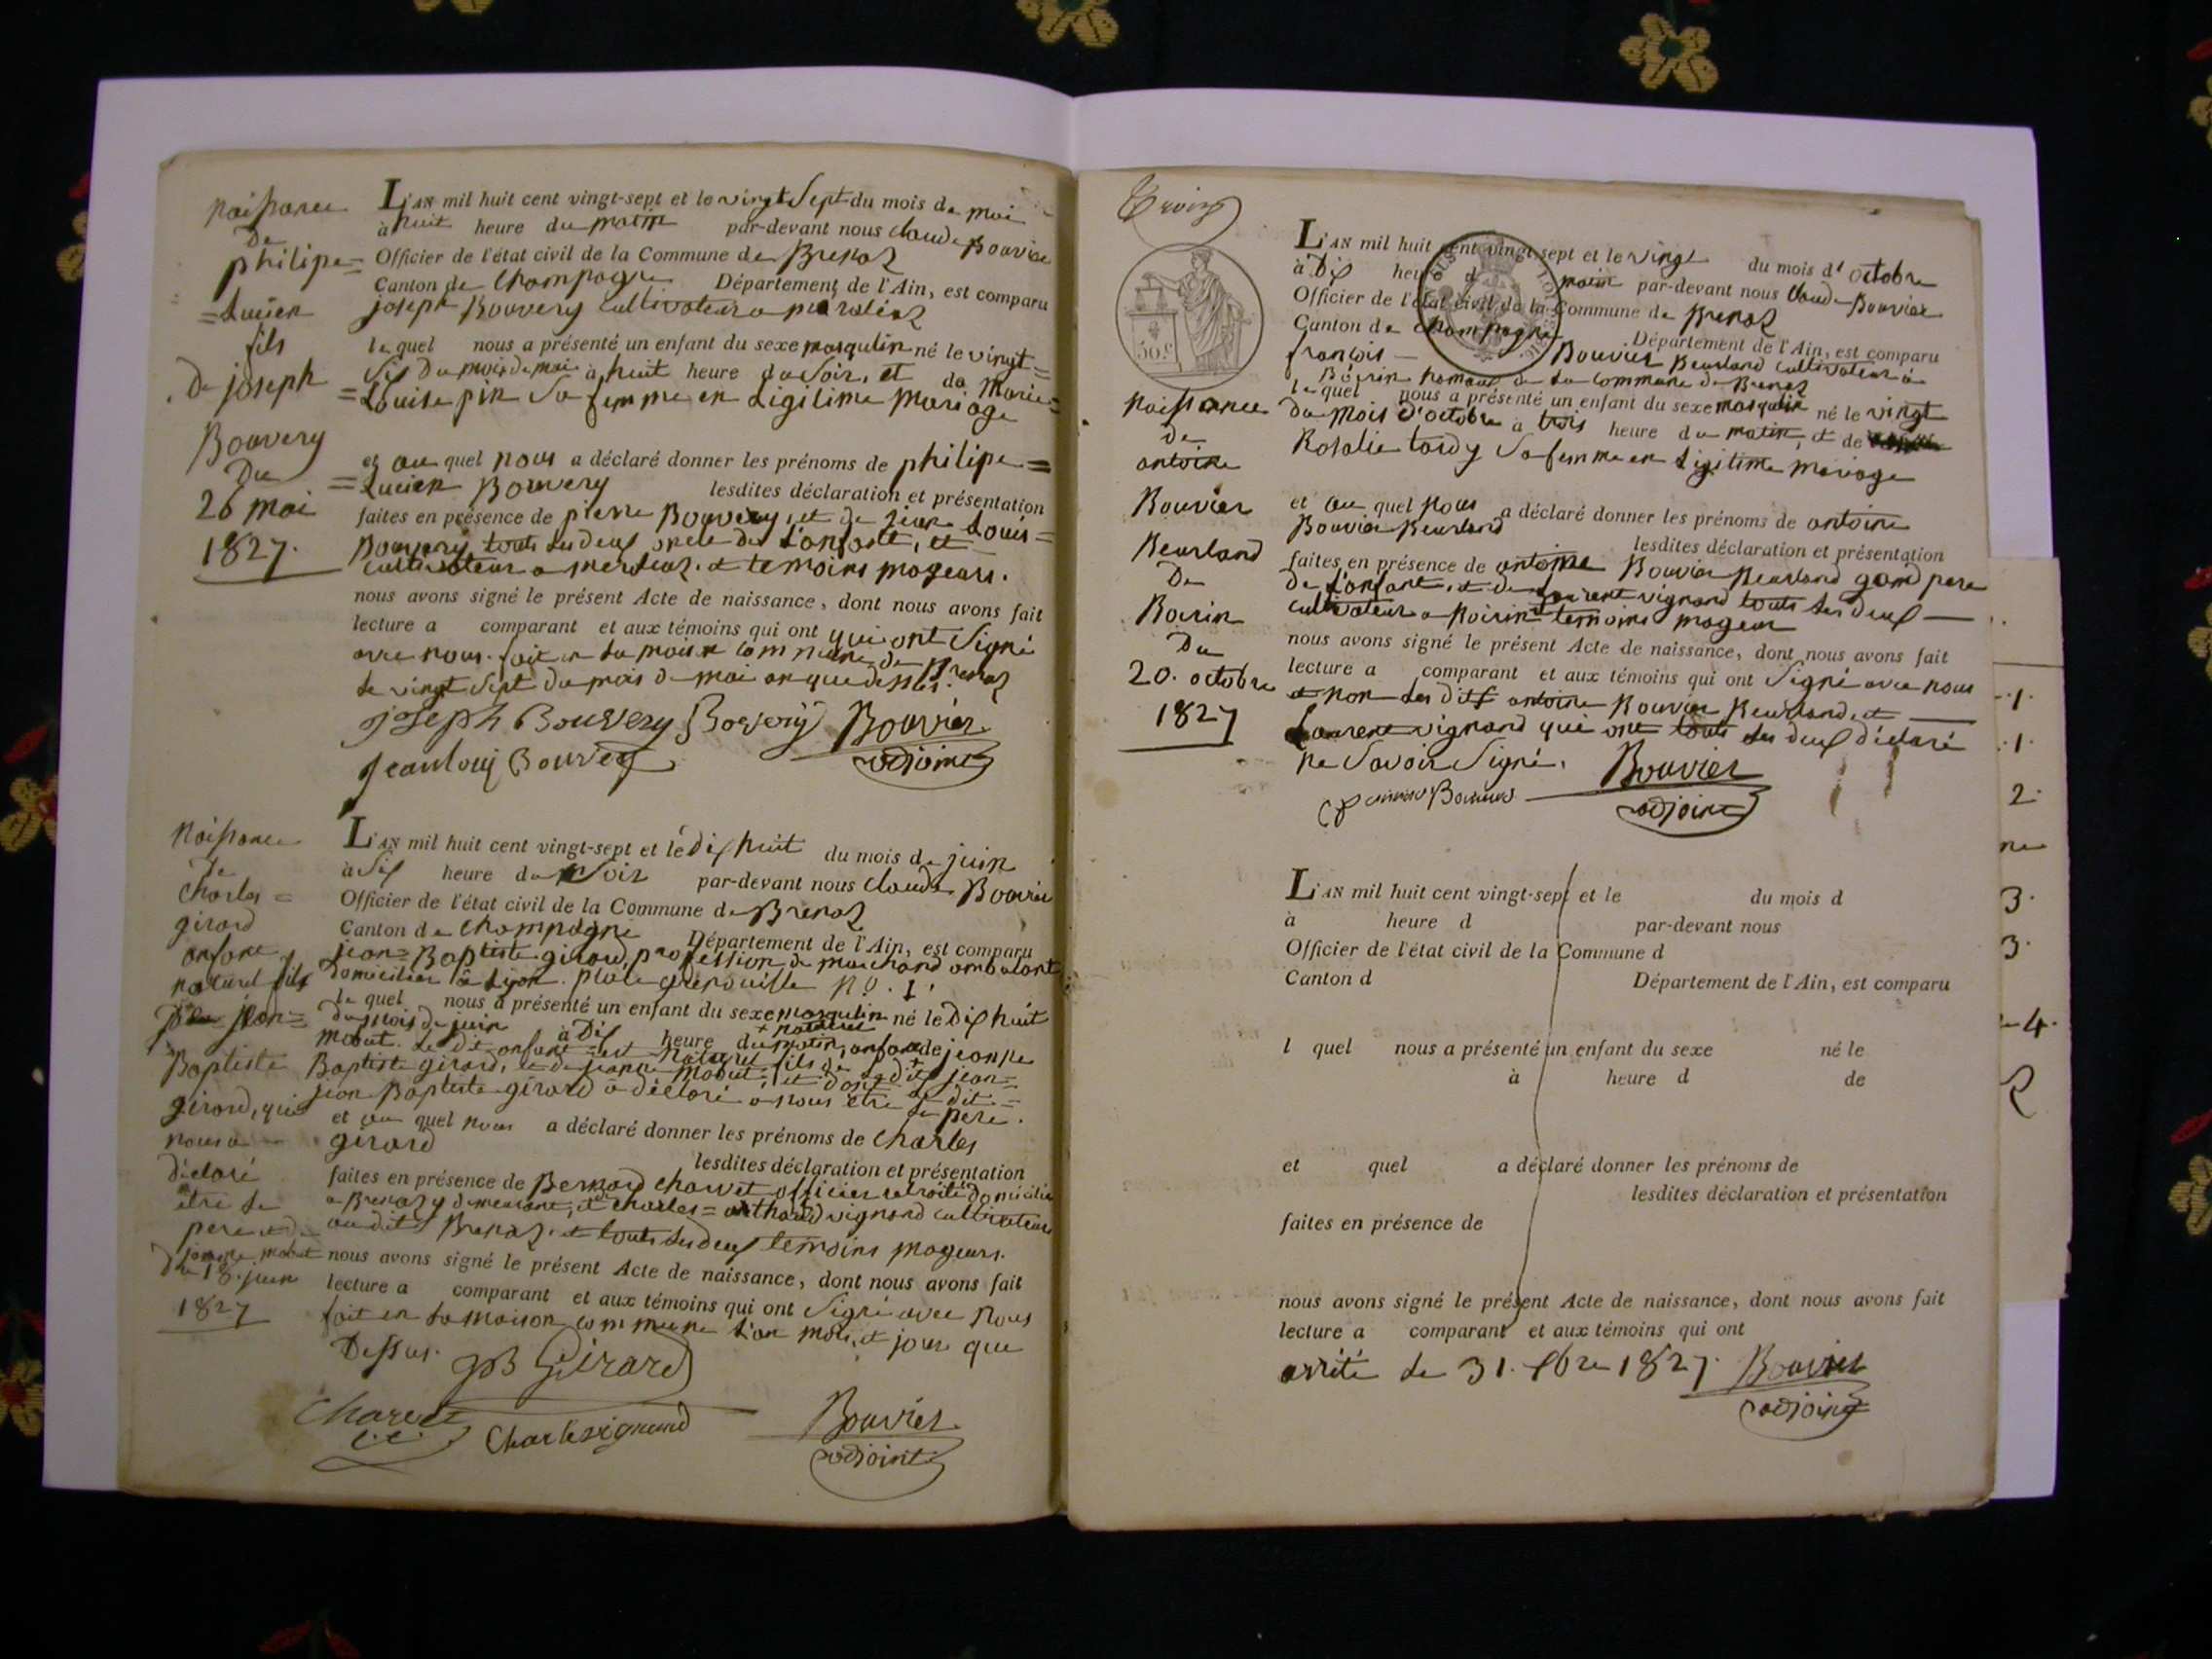 naissance
De
philipe=
=Lucien
fils
De joseph
Bouvery
Du
26 mai
1827.
L'AN mil huit cent vingt-sept et le vingt Sept du mois de mai
à huit heure du matin par-devant nous Claude Bouvier
Officier de l'état civil de la Commune de Brenaz
Canton de Champagne Département de l'Ain, est comparu
joseph Bouvery Cultivateur a
le quel nous a présenté un enfant du sexe masqulin né le vingt=
Six Du mois de mai à huit heure du Soir, et de Marie=
=Louise pin Sa femme en Légitime Mariage
et au quel nous a déclaré donner les prénoms de philipe=
=Lucien Bouvery lesdites déclaration et présentation
faites en présence de pierre Bouvery, et de jean Louis=
Bouvery, touts les deux oncle de L'enfant, et
Cultivateur a temoins mageurs.
nous avons signé le présent Acte de naissance, dont nous avons fait
lecture a comparant et aux témoins qui ont qui ont Signé
avec nous. fait en La maison commune de Brenaz
Le vingt Sept Du mois de mai an que dessus.
joseph Bouvery Bouvery Bouvier
adjoint
Jeanlouis Bouvery
naissance
De
Charles=
girard
enfant
naturel fils
jean=
Baptiste
girard, qui
nous a
déclaré
être Le
pere et de
jeanne mabut
Du 18. juin
1827
L'AN mil huit cent vingt-sept et le Dix huit du mois de juin
à Six heure du Soir par-devant nous Claude Bouvier
Officier de l'état civil de la Commune de Brenaz
Canton de Champagne Département de l'Ain, est comparu
jean=Baptiste girard, profession de marchand ambulant
Domicilier à Lyon. place grenouille n.o. 1.
le quel nous a présenté un enfant du sexe masqulin né le Dix huit
du mois de juin à Dix heure du matin, enfant naturel de jeanne
mabut. Le Dit enfant est naturel fils de Le dit jean=
Baptiste girard, et de jeanne Mabut, et dont Le dit=
jean Baptiste girard à déclaré à nous être Le pere.
et au quel nous a déclaré donner les prénoms de Charles
girard
lesdites déclaration et présentation
faites en présence de Bernard Charvet officier retraité Domicilié
a Brenaz y demeurant, et de Charles=anthelme vignand cultivateur
audit Brenaz. et touts Les deux temoins mageurs.
nous avons signé le présent Acte de naissance, dont nous avons fait
lecture a comparant et aux témoins qui ont Signé avec Nous
fait en La maison commune L'an mois, et jour que
Dessus.
JB Girard
Charvet
Charlesvignand
Bouvier
adjoint
Trois
50.c
naissance
De
antoine
Bouvier
Beurland
De
Boirin
Du
20. octobre
1827
L'AN mil huit cent vingt-sept et le vingt du mois d' octobre
à Dix heure d matin par-devant nous Claude Bouvier
Officier de l'état civil de la Commune de Brenaz
Canton de Champagne Département de l'Ain, est comparu
françois Bouvier Beurland Cultivateur à
Boirin hameau de La commune de Brenaz
le quel nous a présenté un enfant du sexe masqulin né le vingt
du Mois d'octobre à trois heure du matin, et de
Rosalie tardy Sa femme en Légitime Mariage
et au quel nous a déclaré donner les prénoms de antoine
Bouvier Beurland
lesdites déclaration et présentation
faites en présence de antoine Bouvier Beurland grand pere
de L'enfant, et de Laurent vignand touts Les deux
Cultivateur a Boirin temoins mageur
nous avons signé le présent Acte de naissance, dont nous avons fait
lecture a comparant et aux témoins qui ont Signé avec nous
et non Les dits antoine Bouvier Beurland, et
Laurent vignand qui ont touts Les deux déclaré
ne Savoir Signé.
Bouvier
adjoint
L'AN mil huit cent vingt-sept et le du mois d
à heure d par-devant nous
Officier de l'état civil de la Commune d
Canton d Département de l'Ain, est comparu
l quel nous a présenté un enfant du sexe né le
à heure d de
et quel a déclaré donner les prénoms de
lesdites déclaration et présentation
faites en présence de
nous avons signé le présent Acte de naissance, dont nous avons fait
lecture a comparant et aux témoins qui ont
arrêté Le 31. Xbre 1827. Bouvier
adjoint
1.
1.
2.
ne
3.
3.
4.